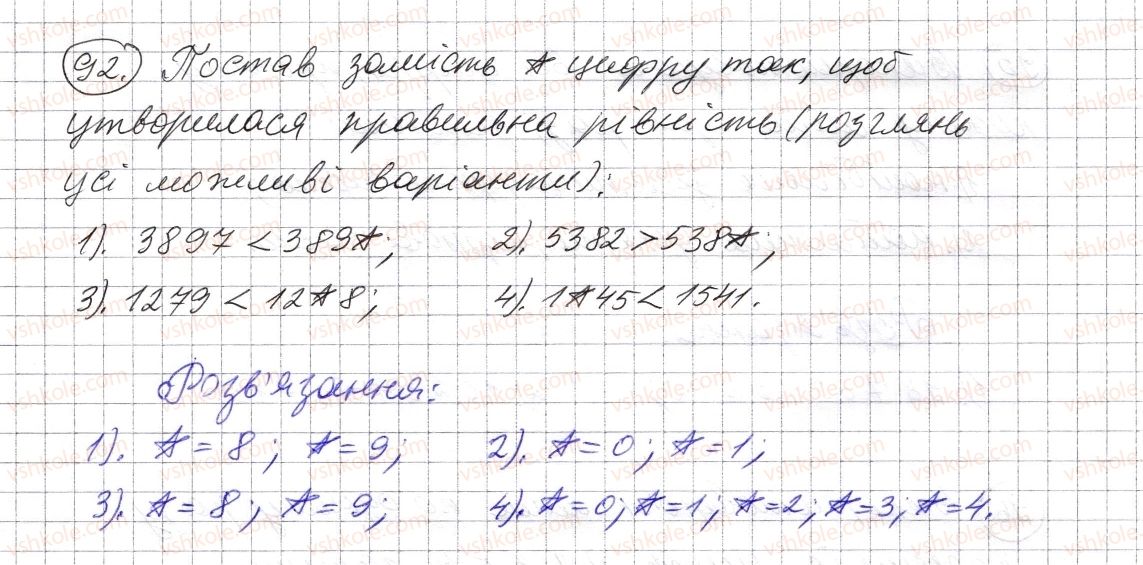 92. Постав замість * цифру так, щоб
утворилася правильна рівність (розглянь
усі можливі варіанти):
1). 3897 < 389*; 2). 5382 > 538*;
3). 1279 < 12*8; 4). 1*45 < 1541.
Розв'язання:
1). * = 8; * = 9; 2). * = 0; * = 1;
3). * = 8; * = 9; 4). * = 0; * = 1; * = 2; * = 3; * = 4.